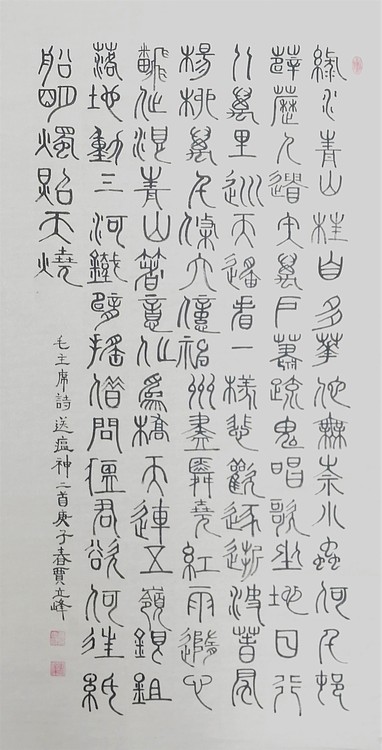 綠水青山枉自多華佗無奈小蟲何千邨
薜荔人遺矢萬戶蕭疏鬼唱歌坐地日行
八萬里巡天遙看一樣悲歡逐逝波春風
楊柳萬千條六億神州盡舜堯紅雨隨心
翻作浪青山著意化為橋天連五嶺銀鉏
落地動三河鐵臂搖借問瘟君欲何往紙
船明燭照天燒
毛主席詩送瘟神二首庚子春賈立峰